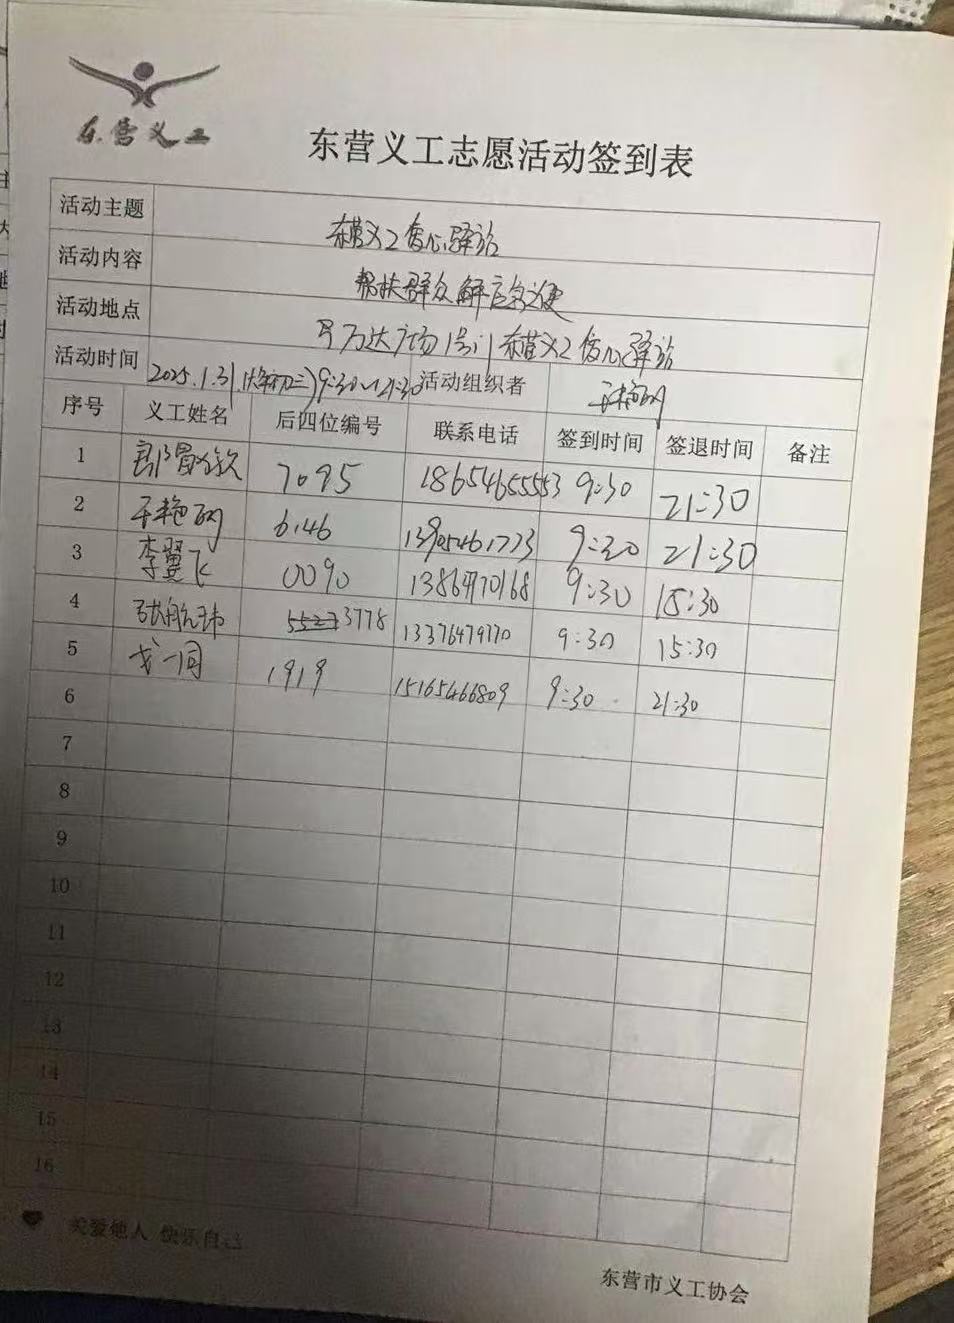 东营义工
东营义工志愿活动签到表
活动主题 东营义工爱心驿站
活动内容 帮扶群众解 急
活动地点 万达广场1号门东营义工爱心驿站
活动时间 2025.1.31.(大年初三)9:30~21:30 活动组织者
序号 义工姓名 后四位编号 联系电话 签到时间 签退时间 备注
1 7095 18654655553 9:30 21:30
2 6146 13905461773 9:30 21:30
3 李翼飞 0090 9:30 15:30
4 3778 13376479770 9:30 15:30
5 戈一同 1919 15165466809 9:30 21:30
6
7
8
9
10
11
12
13
14
15
16
关爱他人 快乐自己
东营市义工协会